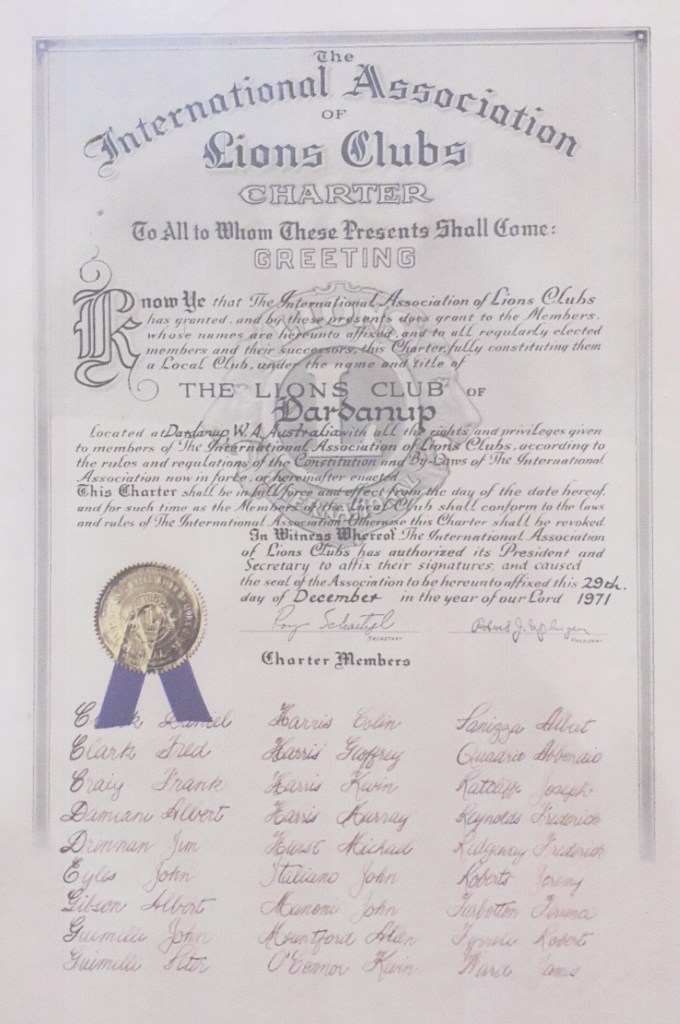 The
International Association
OF
Lions Clubs
CHARTER
To All to Whom These Presents Shall Come:
GREETING
Know Ye that The International Association of Lions Clubs
has granted, and by these presents does grant to the Members,
whose names are hereunto affixed, and to all regularly elected
members and their successors, this Charter, fully constituting them
a Local Club, under the name and title of
THE LIONS CLUB OF
Dardanup
Located at Dardanup W.A. Australia with all the rights and privileges given
to members of The International Association of Lions Clubs, according to
the rules and regulations of the Constitution and By-Laws of The International
Association now in force, or hereinafter enacted.
This Charter shall be in full force and effect from the day of the date hereof,
and for such time as the Members of the Local Club shall conform to the laws
and rules of The International Association. Otherwise this Charter shall be revoked.
In Witness Whereof, The International Association
of Lions Clubs has authorized its President and
Secretary to affix their signatures, and caused
the seal of the Association to be hereunto affixed this 29th.
day of December in the year of our Lord 1971
Roy Schaetzel
SECRETARY
Robert J.
PRESIDENT
Charter Members
Daniel Harris Colin Albert
Clark Fred Harris Geoffrey Quadrio
Craig Frank Harris Kevin Ratcliffe Joseph
Damiani Albert Harris Murray Reynolds Frederick
Drennan Jim Hurst Michael Ridgeway Frederick
Eyles John Italiano John Roberts Jeremy
Gibson Albert Manoni John Tarbotton Terence
Guimelli John Mountford Alien Tyrrell Robert
Guimelli Peter O'Connor Kevin Ward James